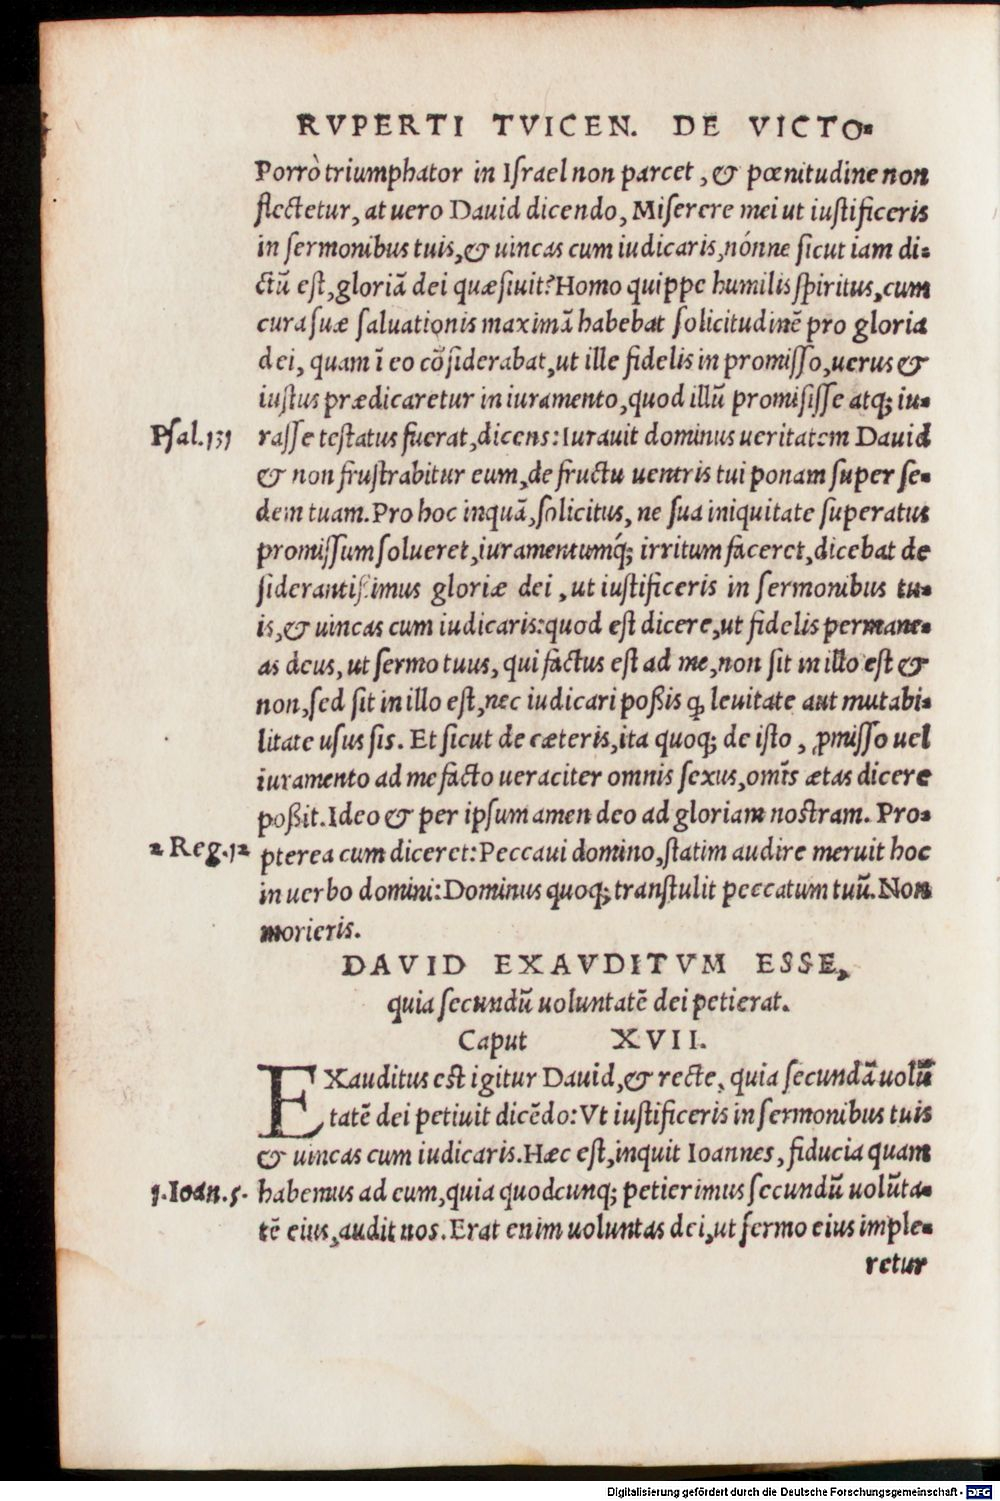 RVPERTI TVICEN. DE VICTO-
Porrò triumphator in Iſrael non parcet, & pœnitudine non
flectetur, at uero Dauid dicendo, Miſerere mei ut iuſtificeris
in ſermonibus tuis, & uincas cum iudicaris, nónne ſicut iam di-
ctũ eſt, gloriã dei quæſiuit? Homo quippe humilis ſpiritus, cum
cura ſuæ ſaluationis maximã habebat ſolicitudinẽ pro gloria
dei, quam ĩ eo cõſiderabat, ut ille fidelis in promiſſo, uerus &
iuſtus prædicaretur in iuramento, quod illũ promiſiſſe atq; iu-
Pſal.131 raſſe teſtatus fuerat, dicens: Iurauit dominus ueritatem Dauid
& non fruſtrabitur eum, de fructu uentris tui ponam ſuper ſe-
dem tuam. Pro hoc inquã, ſolicitus, ne ſua iniquitate ſuperatus
promiſſum ſolueret, iuramentumq́; irritum faceret, dicebat de
ſiderantiſſimus gloriæ dei, ut iuſtificeris in ſermonibus tu-
is, & uincas cum iudicaris: quod eſt dicere, ut fidelis permane-
as deus, ut ſermo tuus, qui factus eſt ad me, non ſit in illo eſt &
non, ſed ſit in illo eſt, nec iudicari poßis ꝙ leuitate aut mutabi-
litate uſus ſis. Et ſicut de cæteris, ita quoq; de iſto, ꝓmiſſo uel
iuramento ad me facto ueraciter omnis ſexus, omĩs ætas dicere
poßit. Ideo & per ipſum amen deo ad gloriam noſtram. Pro-
2 Reg.12 pterea cum diceret: Peccaui domino, ſtatim audire meruit hoc
in uerbo domini: Dominus quoq; tranſtulit peccatum tuũ. Non
morieris.
DAVID EXAVDITVM ESSE,
quia ſecundũ uoluntatẽ dei petierat.
Caput XVII.
EXauditus eſt igitur Dauid, & recte, quia ſecundã uolũ
tatẽ dei petiuit dicẽdo: Vt iuſtificeris in ſermonibus tuis
& uincas cum iudicaris. Hæc eſt, inquit Ioannes, fiducia quam
1. Ioan. 5. habemus ad eum, quia quodcunq; petierimus ſecundũ uolũta-
tẽ eius, audit nos. Erat enim uoluntas dei, ut ſermo eius imple-
retur
Digitalisierung gefördert durch die Deutsche Forschungsgemeinschaft - DFG